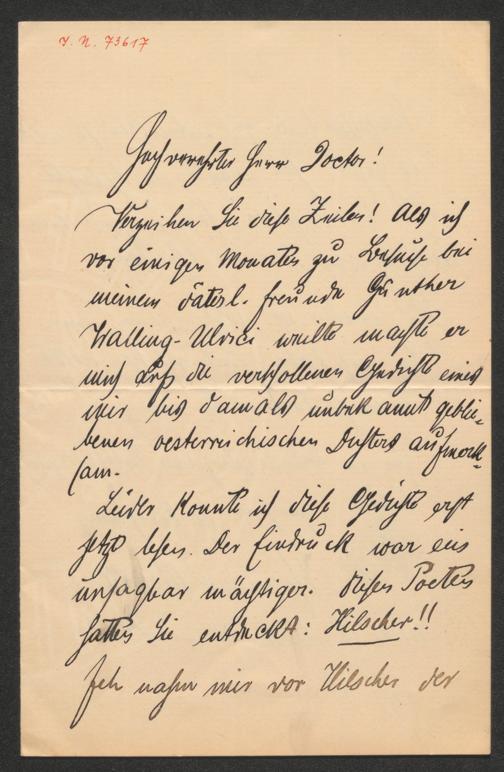 J. N. 73617
Hochverehrter Herr Doctor!
Verzeihen Sie diese Zeilen! Als ich
vor einigen Monaten zu Besuche bei
meinem väterl. Freunde Günther
Walling-Ulrici weilte machte er
mich auf die verschollenen Gedichte eines
mir bis damals unbekannt geblie-
benen oesterreichischen Dichters aufmerk-
sam.
Leider konnte ich diese Gedichte erst
jetzt lesen. Der Eindruck war ein
unsagbar mächtiger. Diesen Poeten
hatten Sie entdeckt: Hilscher!!
Ich nahm mir vor Hilscher der